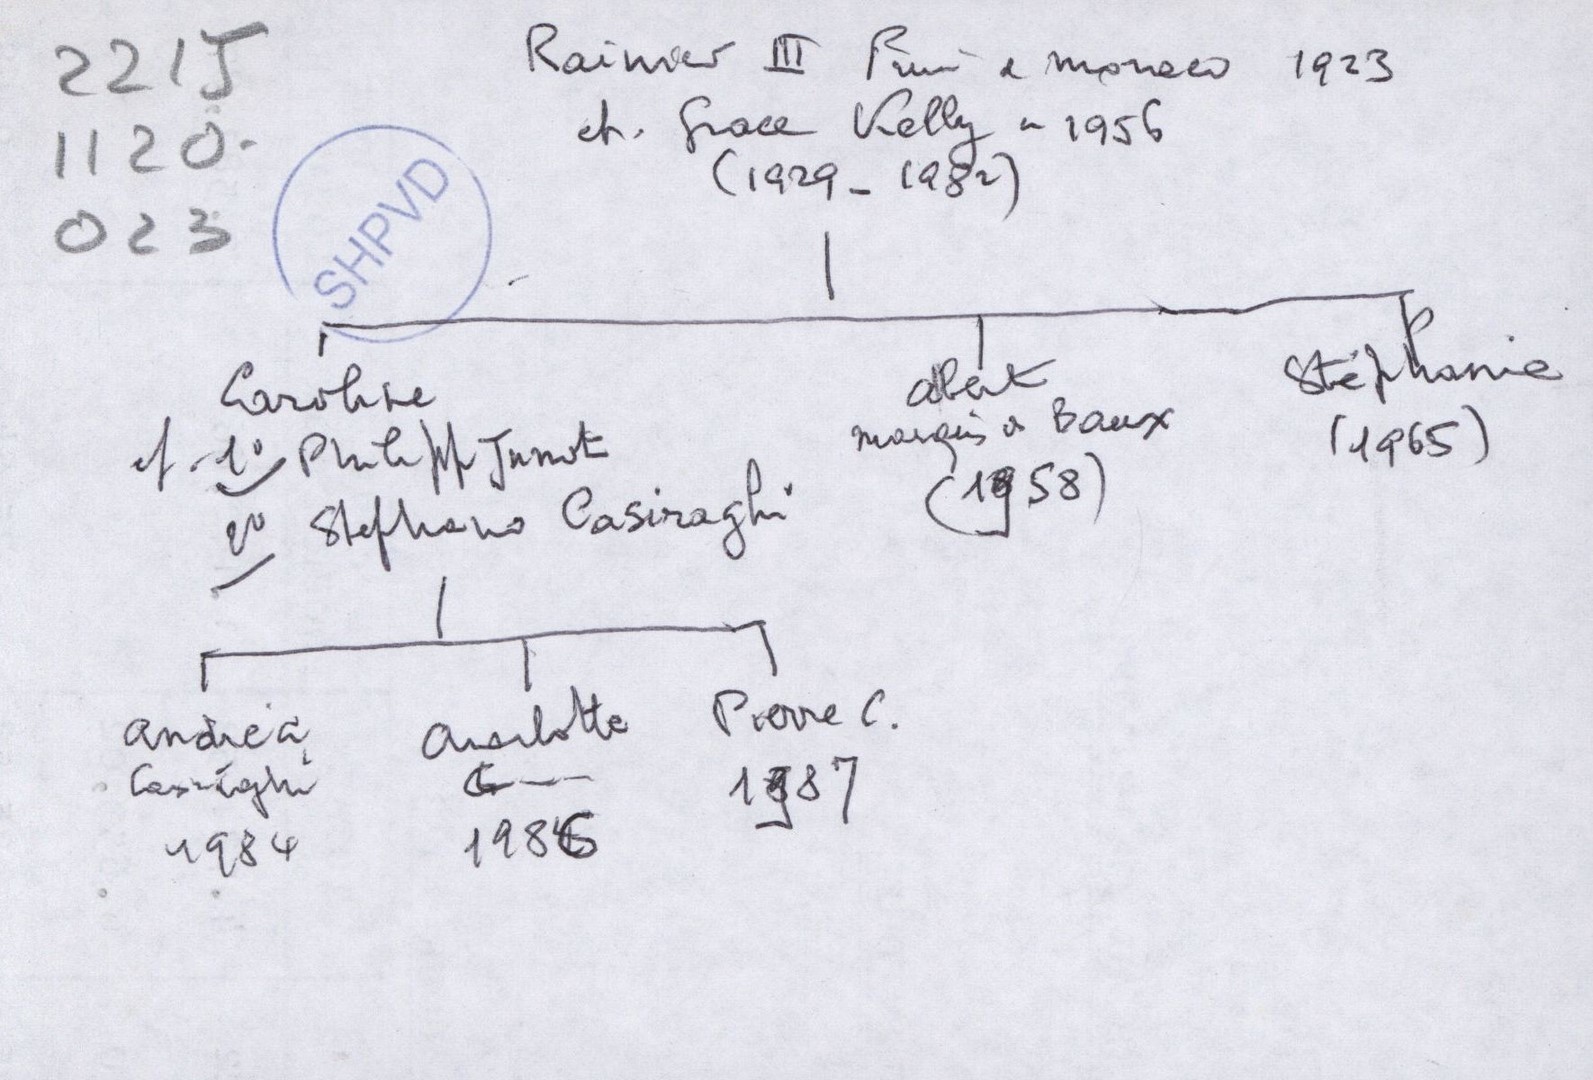 22 15
1120.
023
SHPVD
Rainier III Prince de Monaco 1923
ep. Grace Kelly en 1956
(1929 - 1982)
Caroline
ep. 1° Philipp Junot
2° Stephano Casiraghi
albert
marquis de Baux
(1958)
Stéphanie
(1965)
andréa
Casiraghi
1984
charlotte
C —
1986
Pierre C.
1987